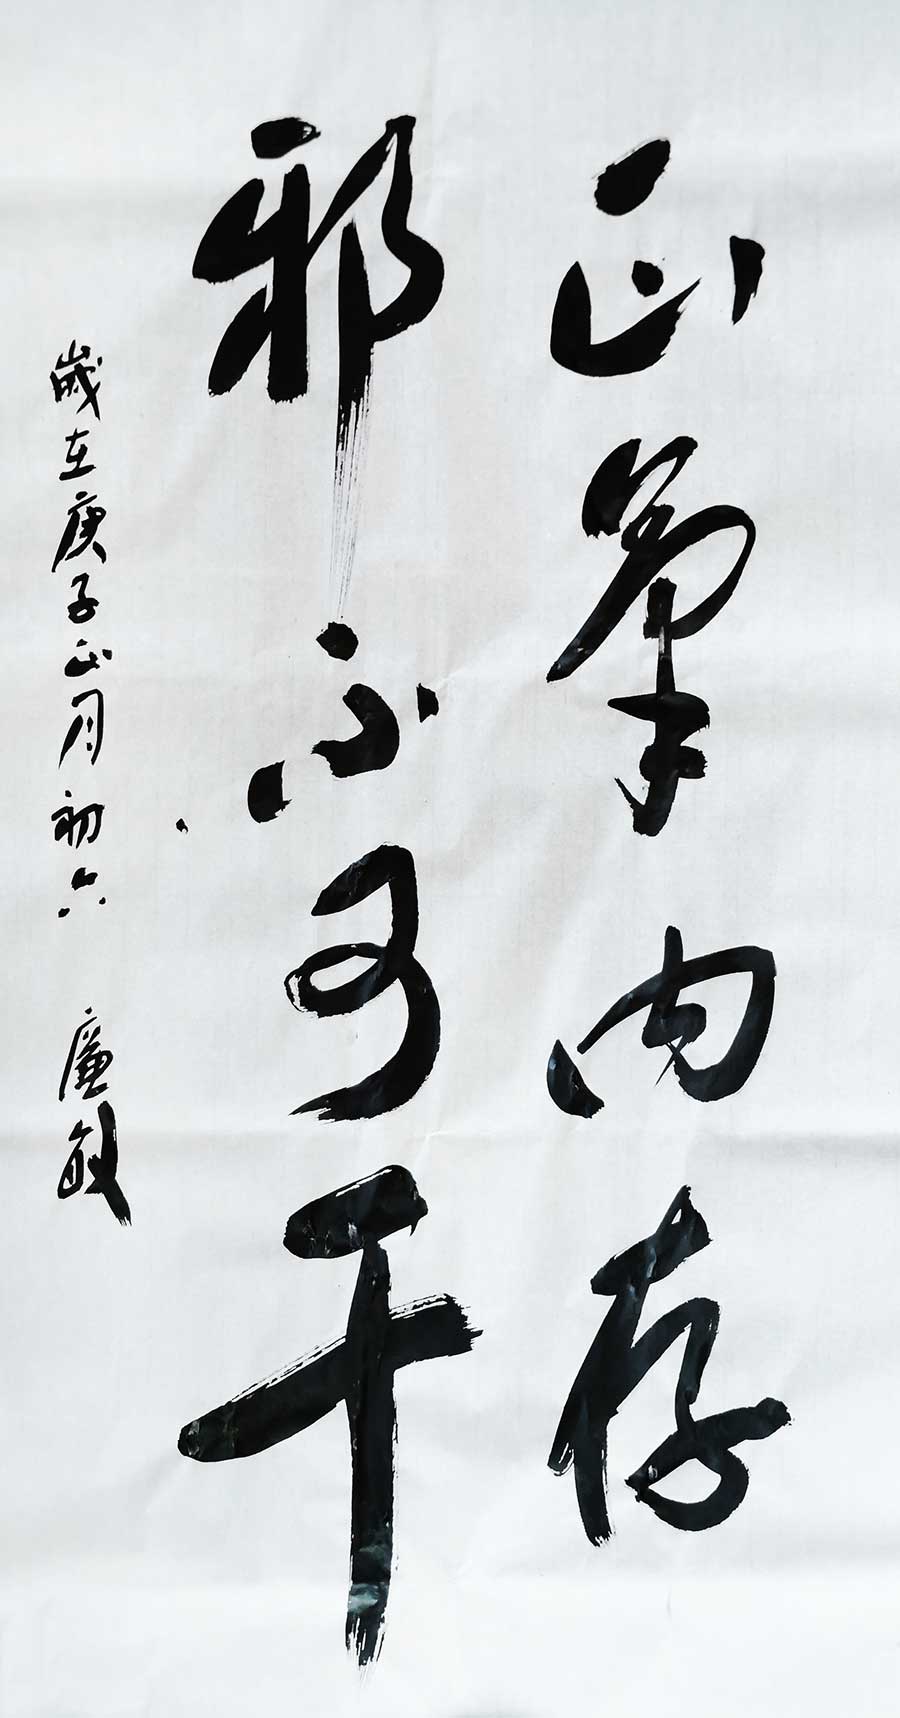 正氣内存
邪不可干
歲在庚子正月初六 廉敏